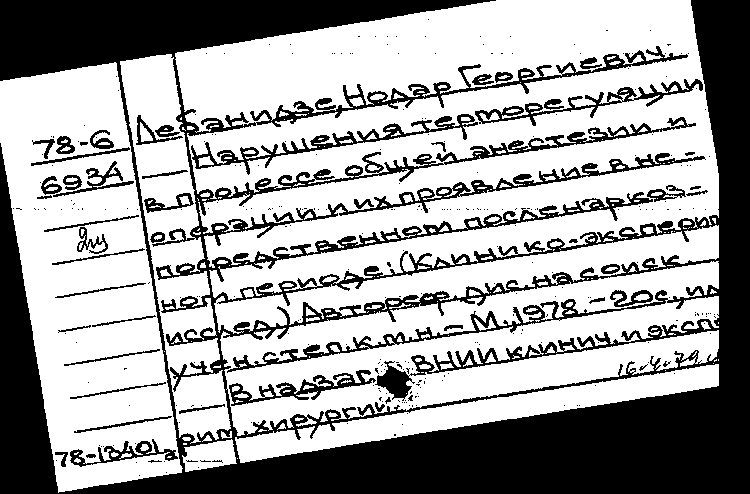 Лебанидзе, Нодар Георгиевич.
78-6
693А
Нарушения терморегуляции
в процессе общей анестезии и
операции и их проявление в не-
посредственном посленаркоз-
ном периоде: (Клинико-эксперим
исслед.). Автореф. дис. на соиск.
учен. степ. к.м.н. – М., 1978. – 20с., ил
В надзаг.: ВНИИ клинич. и экспе
16.4.79
78-13401а
рим. хирургии.